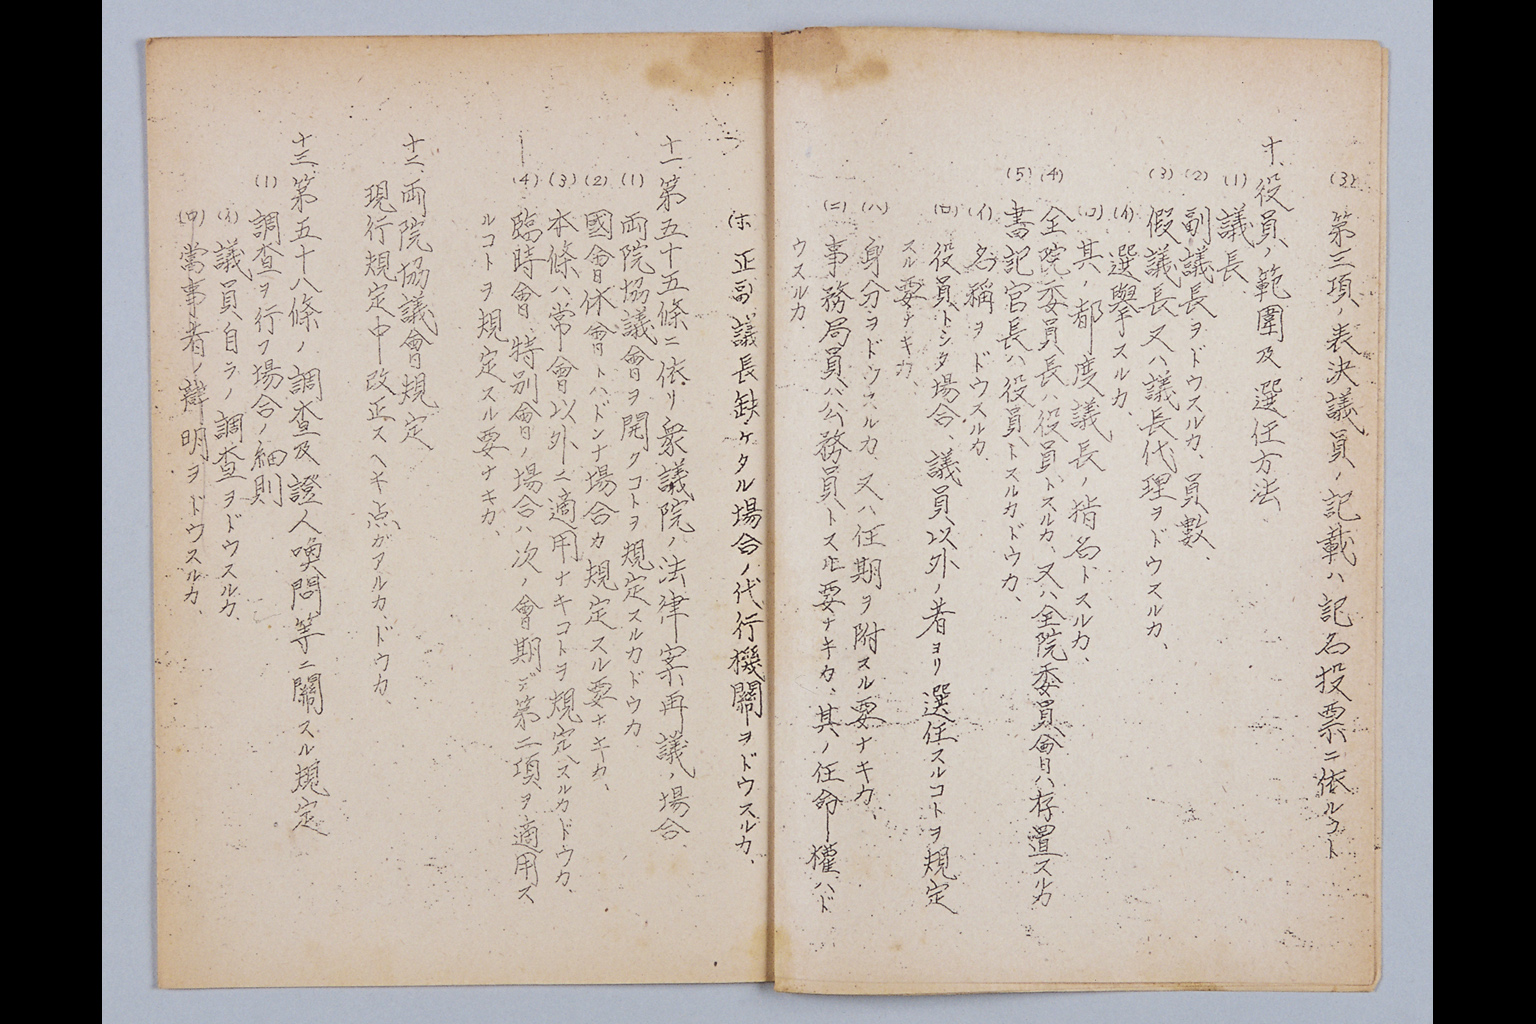 (3) 第三項ノ表決議員ノ記載ハ記名投票ニ依ルコト
十、役員ノ範圍及選任方法
(1) 議長
(2) 副議長ヲドウスルカ、員數、
(3) 假議長又ハ議長代理ヲドウスルカ、
(イ) 選擧スルカ、
(ロ) 其ノ都度議長ノ指名ドスルカ、
(4) 全院委員長ハ役員トスルカ、又ハ全院委員會ハ存置スルカ
(5) 書記官長ハ役員トスルカドウカ、
(イ) 名稱ヲドウスルカ、
(ロ) 役員トシタ場合、議員以外ノ者ヨリ選任スルコトヲ規定
スル要ナキカ、
(ハ) 身分ヲドウスルカ、又ハ任期ヲ附スル要ナキカ、
(ニ) 事務局員ハ公務員トスル要ナキカ、其ノ任命權ハド
ウスルカ、
(ホ) 正副議長缺ケタル場合ノ代行機關ヲドウスルカ、
十一、第五十五條ニ依リ衆議院ノ法律案再議ノ場合
(1) 両院協議會ヲ開クコトヲ規定スルカドウカ
(2) 國會休會トハドンナ場合カ規定スル要ナキカ、
(3) 本條ハ常會以外ニ適用ナキコトヲ規定スルカドウカ、
(4) 臨時會、特別會ノ場合ハ次ノ會期デ第二項ヲ適用ス
ルコトヲ規定スル要ナキカ、
十二、両院協議會規定
現行規定中改正スヘキ点ガアルカ、ドウカ、
十三、第五十八條ノ調査及證人喚問等ニ關スル規定
(1) 調査ヲ行フ場合ノ細則
(イ) 議員自ラノ調査ヲドウスルカ、
(ロ) 當事者ノ辯明ヲドウスルカ、